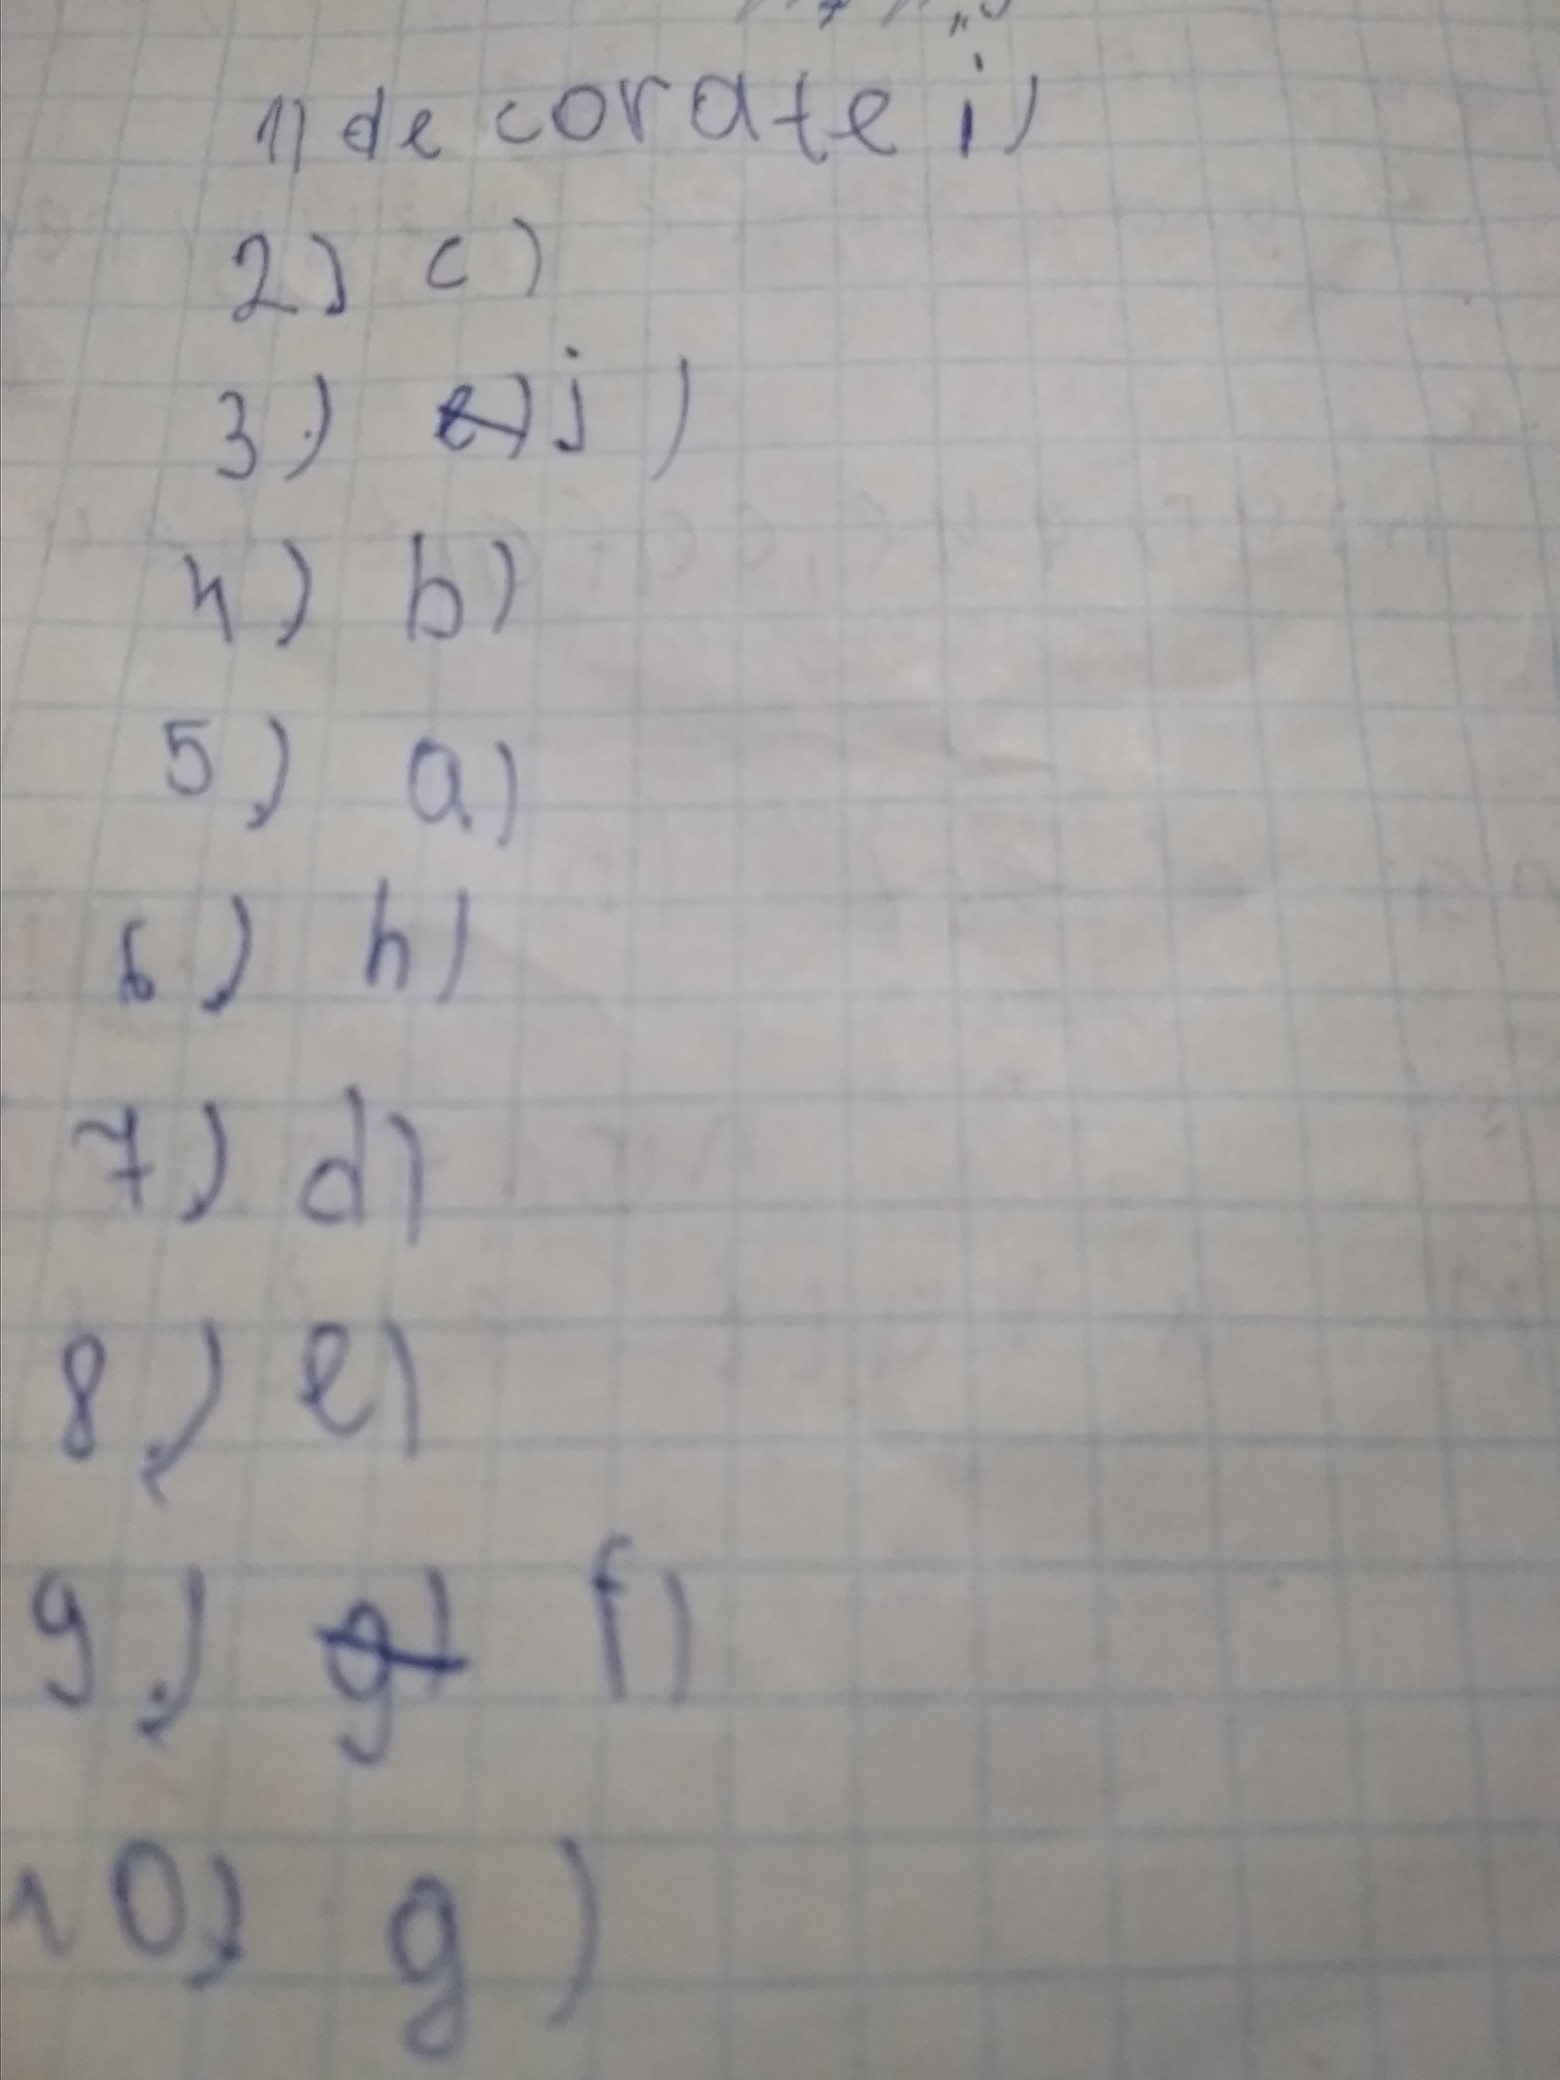 1) decorate i)
2) c)
3) e) j)
4) b)
5) a)
6) h)
7) d)
8) e)
9) g) f)
10) g)